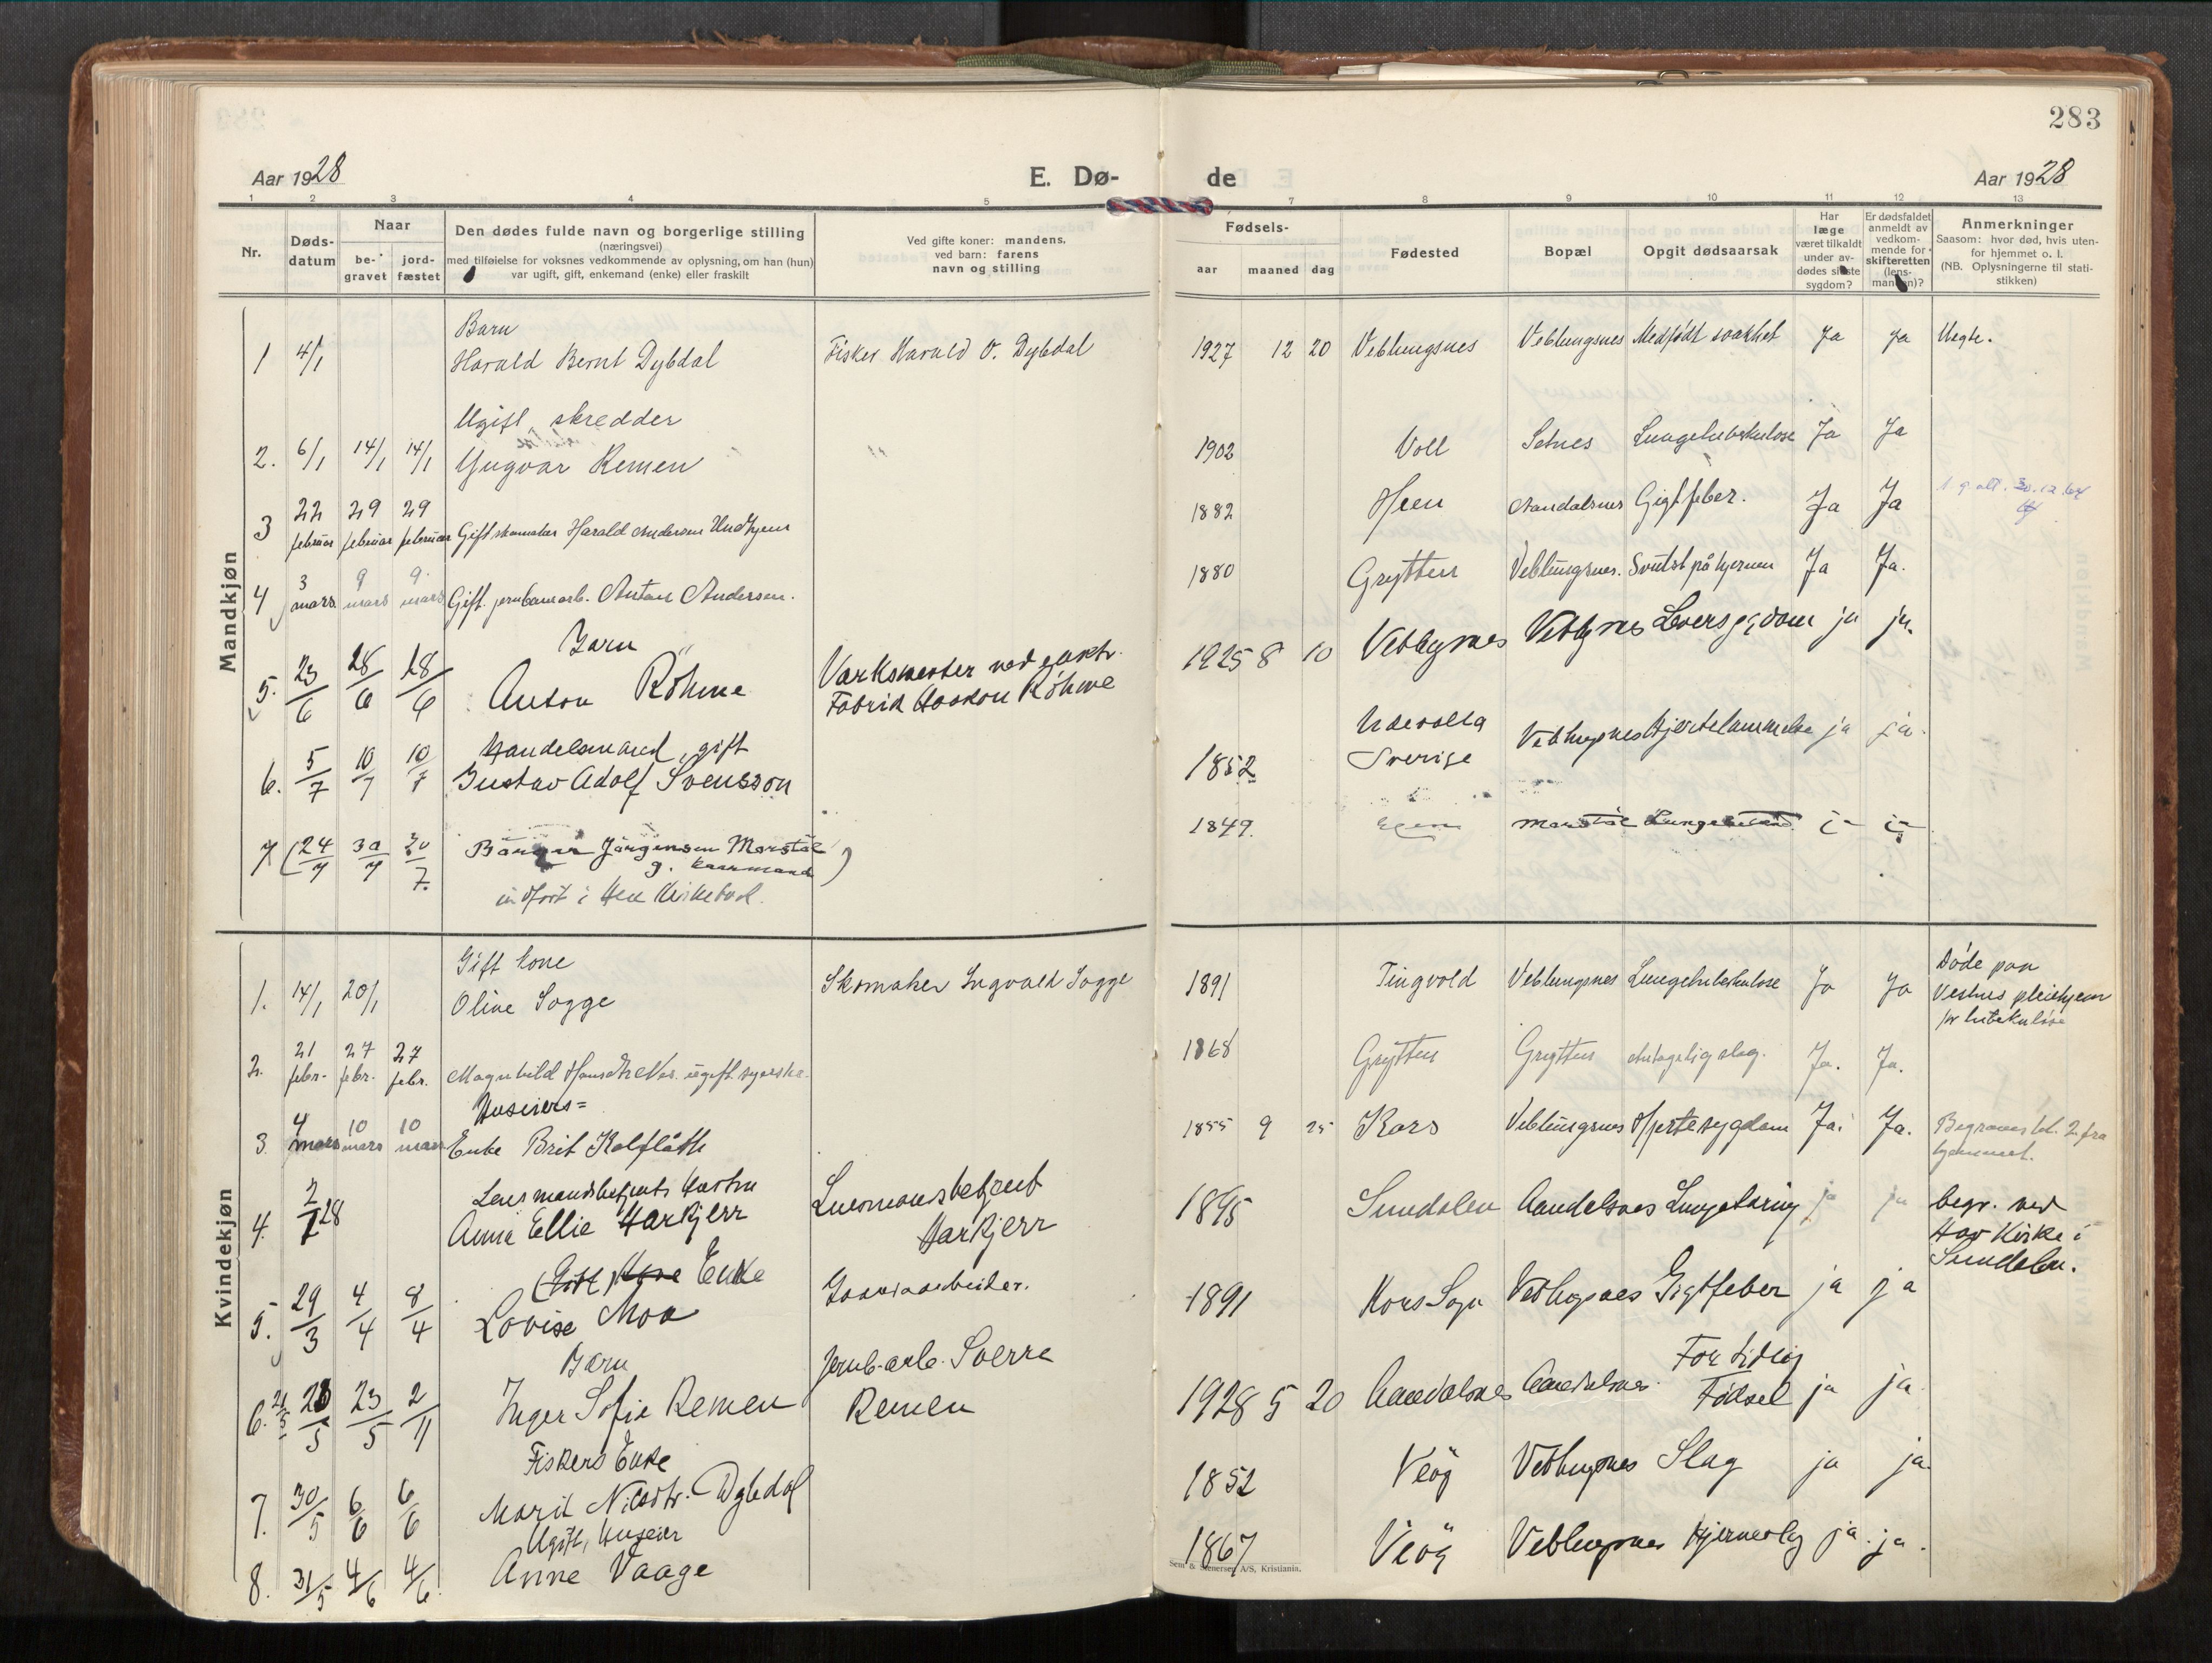 283
Aar 1928
E. Dø-
de
Aar 1928
1 2 3 4 5 7 8 9 10 11 12 13
Nr.
Døds-
datum
Naar
be-
gravet
jord-
fæstet
Den dødes fulde navn og borgerlige stilling
(næringsvei)
med tilføielse for voksnes vedkommende av oplysning, om han (hun)
var ugift, gift, enkemand (enke) eller fraskilt
Ved gifte koner: mandens,
ved barn: farens
navn og stilling
Fødsels-
aar maaned dag
Fødested
Bopæl
Opgit dødsaarsak
Har
læge
været tilkaldt
under av-
dødes sidste
sygdom?
Er dødsfaldet
anmeldt av
vedkom-
mende for
skifteretten
(lens-
manden)?
Anmerkninger
Saasom: hvor død, hvis uten-
for hjemmet o. l.
(NB. Oplysningerne til stati-
stikken)
Mandkjøn
Barn
1 4/1 Harald Bernt Dybdal Fisker Harald O. Dybdal 1927 12 20 Veblungsnes Veblungsnes Medfødt svakhet Ja Ja Uegte.
Ugift, skredder
2. 6/1 14/1 14/1 Yngvar Remen 1902 Voll Setnes Lungetuberkulose Ja Ja
3 22 februar 29 februar 29 februar Gift skomaker Harald Andersen Undhjem 1882 Heen Aandalsnes Gigtfeber. Ja Ja
4 3 mars 9 mars 9. mars Gift jernbanearb. Anton Andersen. 1880 Grytten Veblungsnes. Svulst på hjernen Ja Ja.
Barn
5. 23/6 28/6 28/6 Anton Röhme Varksmester ved
Fabrik Haakon Röhme 1925 8 10 Veblugsnes Veblugsnes Leversygdom ja ja.
Handelsmand, gift
6. 5/7 10/7 10/7 Gustav Adolf Svensson 1852 Udevalla
Sverige Veblugsnes Hjertelammelse ja ja.
7 (24/7 30/7 30/7. Jörgensen Marstøl
g. kaarmand) 1849. Marstøl ja ja
indført i Hen Kirkebok.
Kvindekjøn
Gift kone
1. 14/1 20/1 Oline Sogge Skomaker Ingvald Sogge 1891 Tingvold Veblungsnes Lungetuberkulose Ja Ja Døde paa
Vestnes pleiehjem
for tuberkuløse
2. 21 febr. 27 febr. 27 febr. Magnhild ugift syerske. 1868 Grytten Grytten slag. Ja. Ja.
Huseiers=
3. 4 mars 10 mars 10 mars Enke Brit Kalflåth 1855 9 25 Kors Veblungsnes Hjertesygdom Ja. Ja. Begravet fra
hjemmet.
Lensmandsbetjents Hustru
4. 2/1 28 Anna Ellie Harkjerr Lensmandsbetjent
Harkjerr 1895 Sundalen Aandalsnes Lungetæring ja ja begr. ved
Hov Kirke i
Sundalen.
(Gift) Kone Enke
5. 29/3 4/4 8/4 Lovise Moa 1891 Kors Sogn Veblugsnes Gigtfeber ja ja
Barn
6. 21/5 23/5 2/11 Inger Sofie Remen Jernb-arb. Sverre
Remen 1928 5 20 Aandalsnes Aandalsnes. For tidlig
Fødsel ja ja.
Fiskers Enke
7. 30/5 6/6 6/6 Marit Nilsdtr. Dybdal 1852 Veöy Veblugsnes Slag ja ja.
Ugift, Huseier
8. 31/5 4/6 4/6. Anne Vaage 1867 Veöy Veblugsnes Hjerneslag ja. ja.
Sem & Stenersen A/S, Kristiania.